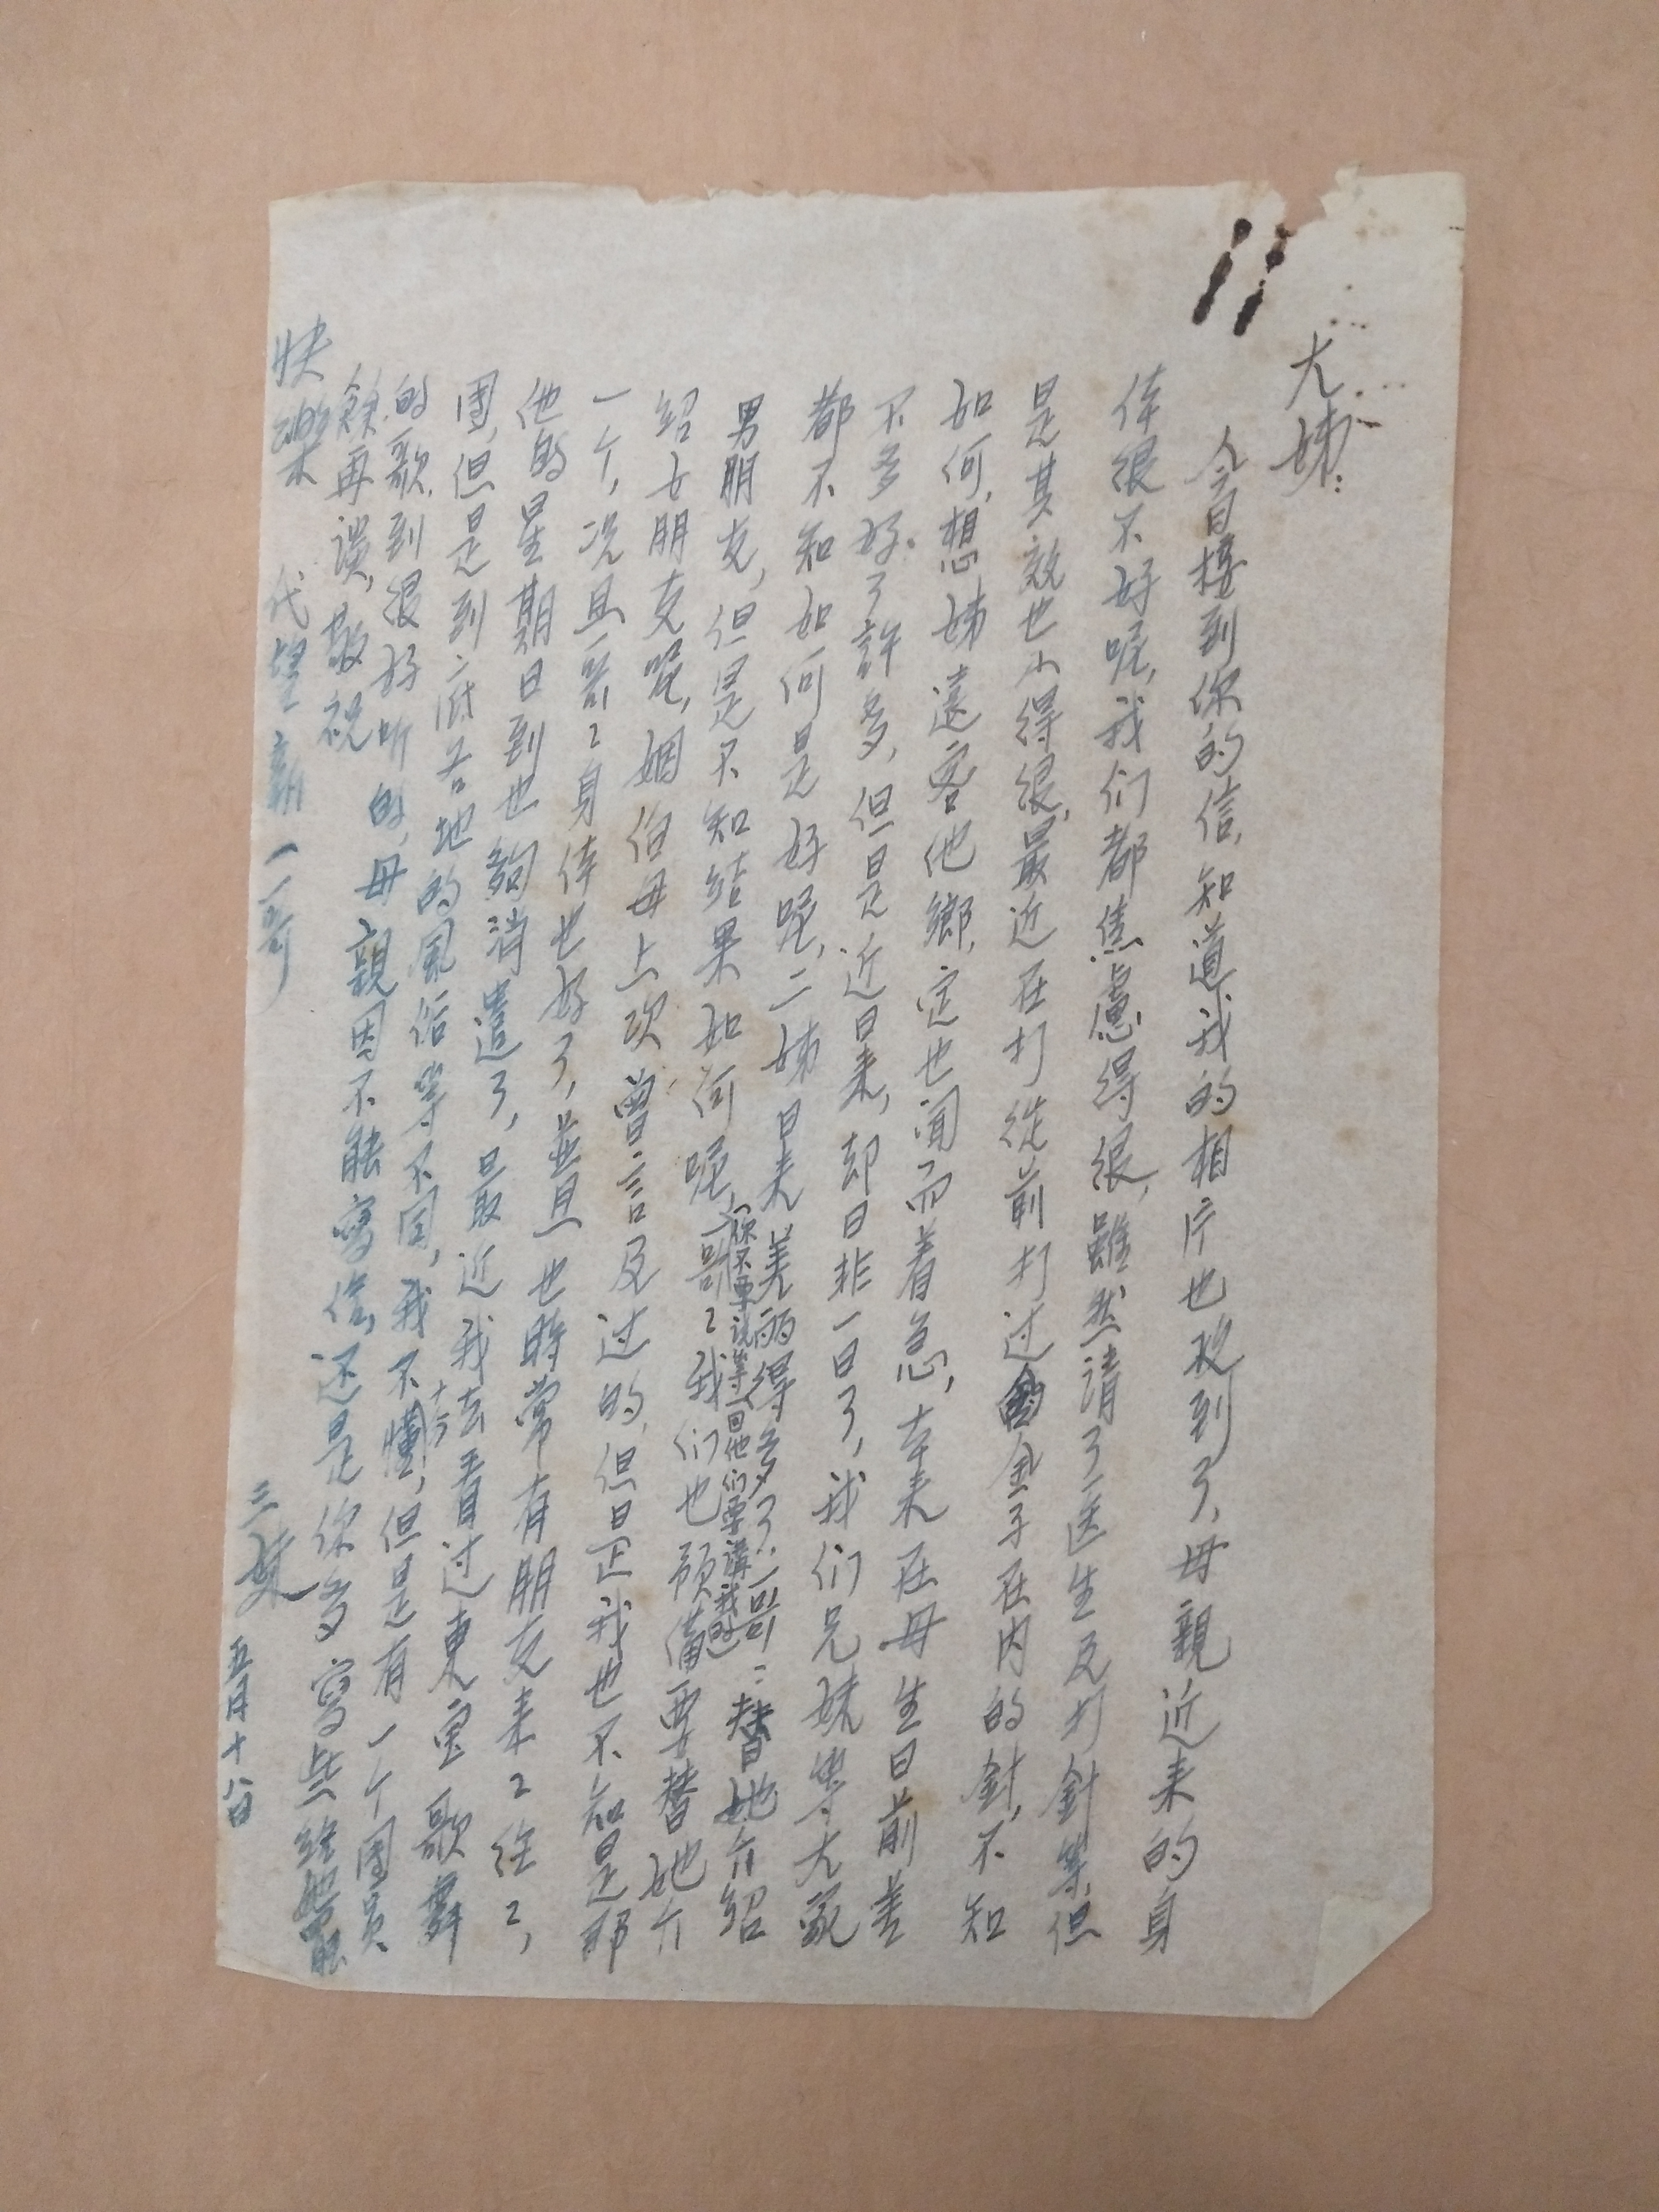 大姊：
今日接到你的信，知道我的相片也收到了，母親近来的身
体很不好呢，我们都焦慮得很，雖然請了医生及打針等，但
是其效也小得很，最近在打從前打过金子在内的針，不知
如何，想姊遠客他鄉，定也闻而着急，本来在母生日前差
不多好了許多，但是近日来，却日非一日了，我们兄妹等大家
都不知如何是好呢，二姊日来美丽得多了，二哥：替她介紹
男朋友，但是不知結果如何呢，二哥2我们也預備要替他介
（你不要说等一回他们要講我的）
紹女朋友呢，姻伯母上次曾言及过的，但是正我也不知是那
一个，况且二哥2身体也好了，並且也時常有朋友来2往2，
他的星期日到也夠消遣了，最近我去看过東宝歌舞
十六
团，但是到底各地的風俗等不同，我不懂，但是有一个團員
的歌，到很好听的，母親因不能寫信，还是你多寫些给她罷
餘再談，敬祝
快樂　代望新一哥
三妹　五月十八日